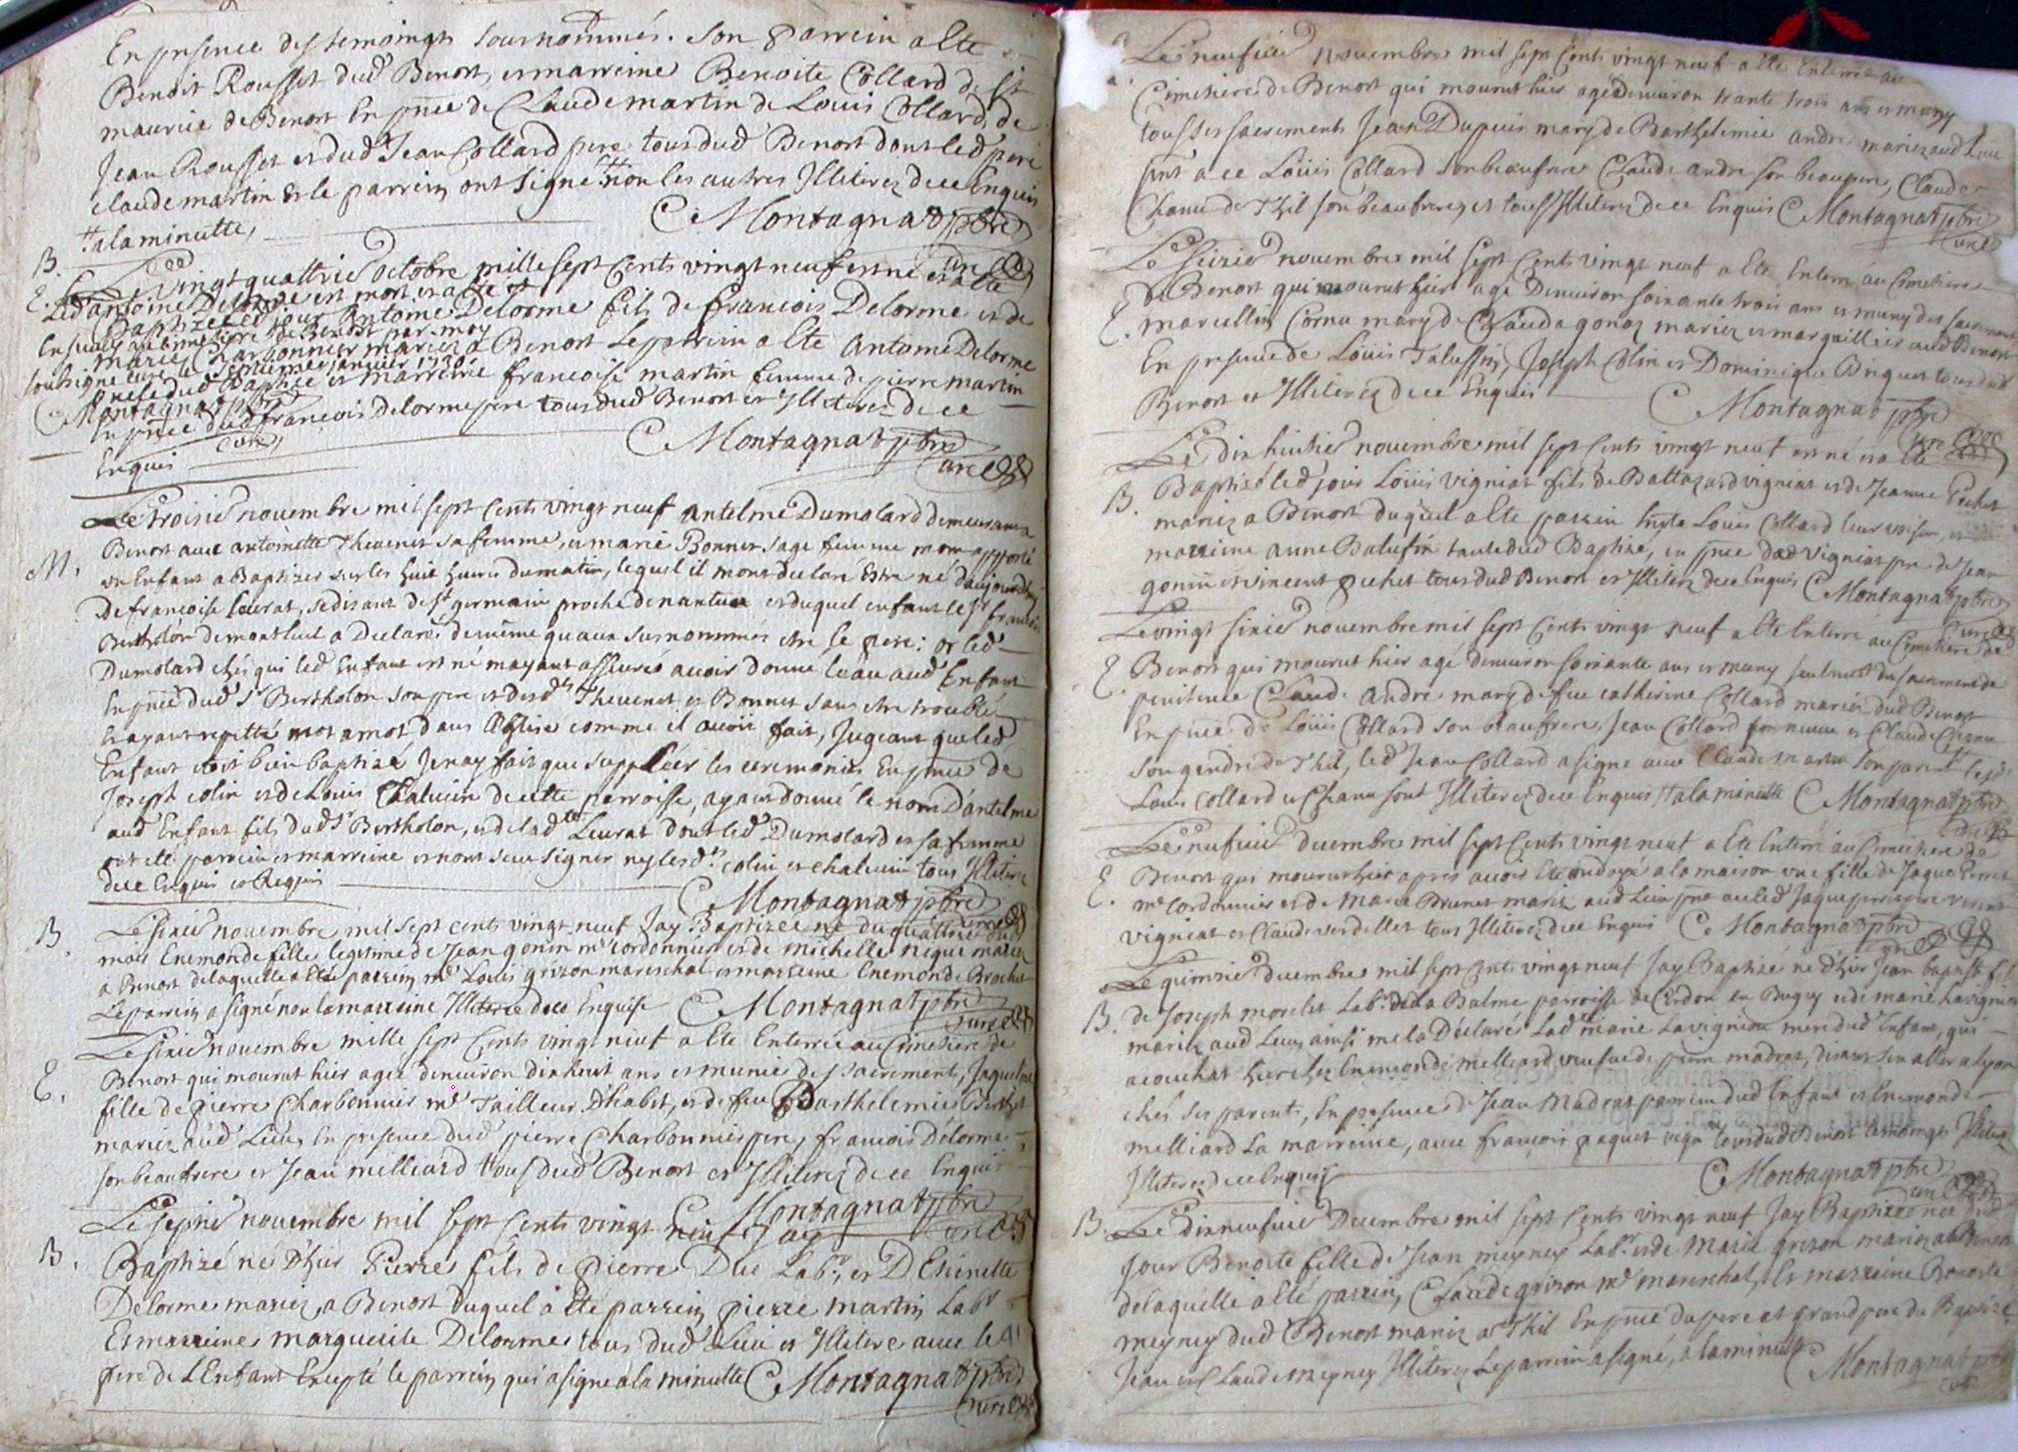 En presence des temoings sousnommés. Son parrein a Ete
Benoit Rousset dud Benost, et marreine Benoite Collard de St
maurice de Benost En pnce de Claude martin de Louis Collard, de
Jean Rousset et dud Jean Collard pere tous dud Benost dont led pere
claude martin & le parrein ont signé non les autres Illiterez de ce Enquis
a la minutte,
C Montagnat ptre
curé
B.
Le vingt quattrie octobre mille sept Cents vingt neuf est né et a ete
E. Led antoine Delorme est mort et a ete
Baptizé led jour Antoine Delorme fils de francois Delorme et de
Ensevely au cimetiere de Benost par moy
marie Charbonnier mariez a Benost Le parrein a Ete Antoine Delorme
soubsigne curé le septieme janvier 1730
oncle dud Baptizé et marreine francoise martin femme de pierre martin
C Montagnat ptre
curé
En pnce dud francois Delorme pere tous dud Benost et Illiterez de ce
Enquis
C Montagnat ptre
curé
Le troisie novembre mil sept Cents vingt neuf Antelme Dumolard demeurant a
M. Benost avec antoinette Thevenet sa femme, et marie Bonnet sage femme mont apporté
un Enfant a Baptizer sur les huit heures du matin, lequel il mont declaré Estre né daujourdhuy
de francoise Leurat, se disant de St germain proche de nantua et duquel enfant le Sr francois
Bertholon de montluel a Declaré de même qu aux susnommés etre le pere: or led
Dumolard chés qui led Enfant est né mayant assuré avoir donné leau aud Enfant
En pnce dud Sr Bertholon son pere et desd Thevenet et Bonnet sans etre troublé
Et ayant repetté mot a mot dans lEglise comme il avoit fait, Jugeant que led
Enfant etoit bien baptizé Je nay fait que suppleer les ceremonies En pnce de
Joseph colin et de Louis Chalumin de cette parroisse, ayant donné le nom D'antelme
aud Enfant fils dud Sr Bertholon, et de lad Leurat dont led Dumolard et sa femme
ont ete parrein et marreine et nont sceu signer ny lesd colin et chalumin tous Illiterez
de ce Enquis et Requis
C Montagnat ptre
curé
B Le sixie novembre mil sept cents vingt neuf Jay Baptizée née du quattrie dud
mois Enemonde fille legitime de Jean gonin me cordonnier et de michelle nique mariez
a Benost de laquelle a Eté parrein me Louis grizon mareschal et marreine Enemonde Brochet
Le parrein a signé non la marreine Illiterée de ce Enquise C Montagnat ptre
curé
Le sixie novembre mille sept Cents vingt neuf a Ete Enterrée au Cimetiere de
E. Benost qui mourut hier agée denviron dix huit ans et munie des sacrements, Jaqueline
fille de pierre Charbonnier me Tailleur D'habit, et de feu Barthelemie Berthet
mariez aud Lieu, En presence dud pierre Charbonnier pere, francois Delorme
son beaufrere et Jean milliard tous dud Benost et Illiterez de ce Enquis
C Montagnat ptre
curé
Le septie novembre mil sept Cents vingt neuf Jay
B. Baptizé né D'hier Pierre fils de pierre Duc Labr, et D'Etiennette
Delorme mariez a Benost duquel a Ete parrein pierre martin Labr
Et marreine marguerite Delorme tous dud Lieu et Illiterée avec le
pere de L'Enfant Excepté le parrein qui a signé a la minutte C Montagnat ptre
curé
Le neufvie novembre mil sept Cents vingt neuf a Ete Enterré au
Cimetiere de Benost qui mourut hier agé denviron trante trois ans et muny
tous ses sacrements Jean Dupuis mary de Barthelemie andre mariez aud Lieu
pnts a ce Louis Collard son beaufrere Claude andre son beaupere, Claude
Chanu de Thil son beaufrere, et tous Illiterez de ce Enquis C Montagnat ptre
curé
Le Seizie novembre mil sept Cents vingt neuf a Ete Enterré au Cimetiere
de Benost qui mourut hier agé Denviron soixante trois ans et muny des sacrements
E. marcellin Cornu mary de Claudaz gonoz mariez et marguillier aud Benost
En presence de Louis Talussin, Joseph Colin et Dominique Briquet tous dud
Benost et Illiterez de ce Enquis
C Montagnat ptre
curé
Le dix huitie novembre mil sept Cents vingt neuf est né et a Ete
B. Baptizé led jour Louis vigniat fils de Baltazard vigniat et de Jeanne Pechet
mariez a Benost duquel a Ete parrein Louis Collard leur voisin, et
marreine anne Balufin tante dud Baptizé, en pnce dud vigniat pere de Jean
gonin et vincent pechet tous dud Benost et Illiterez de ce Enquis C Montagnat ptre
curé
Le vingt sixie novembre mil sept Cents vingt neuf a Ete Enterré au Cimetiere de
E. Benost qui mourut hier agé denviron soixante ans et muny seulement du sacrement de
penitence Claude Andre mary de feue catherine Collard mariez dud Benost
En pnce de Louis Collard son beaufrere, Jean Collard son neveu et Claude Chanu
son gendre de Thil, led Jean Collard a signé avec Claude martin son parent led
Louis Collard et Chanu sont Illiterez de ce Enquis a la minutte C Montagnat ptre
curé
Le neufvie decembre mil sept Cents vingt neuf a Ete Enterré au Cimetiere de
E. Benost qui mourut hier apres avoir Ete ondoyé a la maison une fille de Jaque Perret
me Cordonnier et de marie Brunet mariez aud Lieu pnts au led Jaque perret pere vincent
vigniat et Claude verdellet tous Illiterez de ce Enquis C Montagnat ptre
curé
Le quinzie decembre mil sept Cents vingt neuf Jay Baptizé né D'hier Jean baptiste fils
B. de Joseph morelet Labr de la Balme parroisse de Cerdon en Bugey et de marie Lavigniere
mariez aud Lieu, ainsi me la Déclaré Lad marie Lavigniere mere dud Enfant, qui
acouchat hier chez Enemonde Milliard veufve de pierre madrat, disant sen aller a Lyon
chés ses parents, En presence de Jean Madrat parrein dud Enfant et Enemonde
milliard La marreine, avec francois paquet tous dud Benost temoings Illiterez
Illiterez de ce Enquis
C Montagnat ptre
curé
B. Le Dix neufvie Decembre mil sept Cents vingt neuf Jay Baptizée née dud
jour Benoite fille de Jean meyney Labr et de Marie grizon mariez a Benost
de laquelle a Eté parrein, Claude grizon me mareschal, Et marreine Benoite
meyney dud Benost mariez a Thil En pnce du pere et grand pere du Baptizé
Jean et Claude meyney Illiterez Le parrein a signé, a la minutte C Montagnat ptre
curé